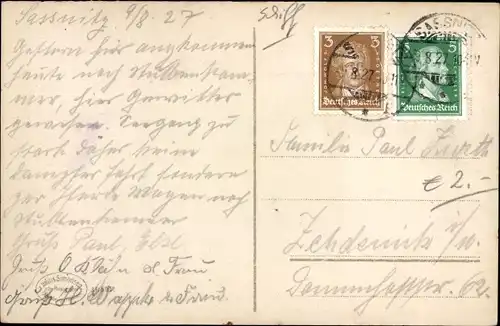 Sassnitz 9/8. 27
Gestern hier angekommen
heute nach Stubbenkam-
mer, hier Gewitter
gewesen. Seegang zu
stark daher keine
Dampferfahrt sondern
per Pferde Wagen nach
Stubbenkammer
Gruß Paul,
Gruß O. Kühn & Frau
Gruß H. & Frau.
3 3
Deutsches Reich
SASSNITZ
5 5
Deutsches Reich
Familie Paul
€ 2.-
Zehdenick